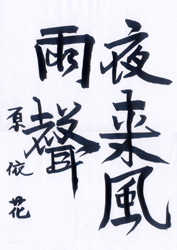 夜来風
雨聲
原依花